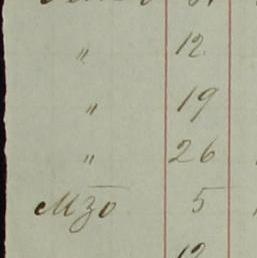 " 12.
" 19
" 26
Mzo 5
12